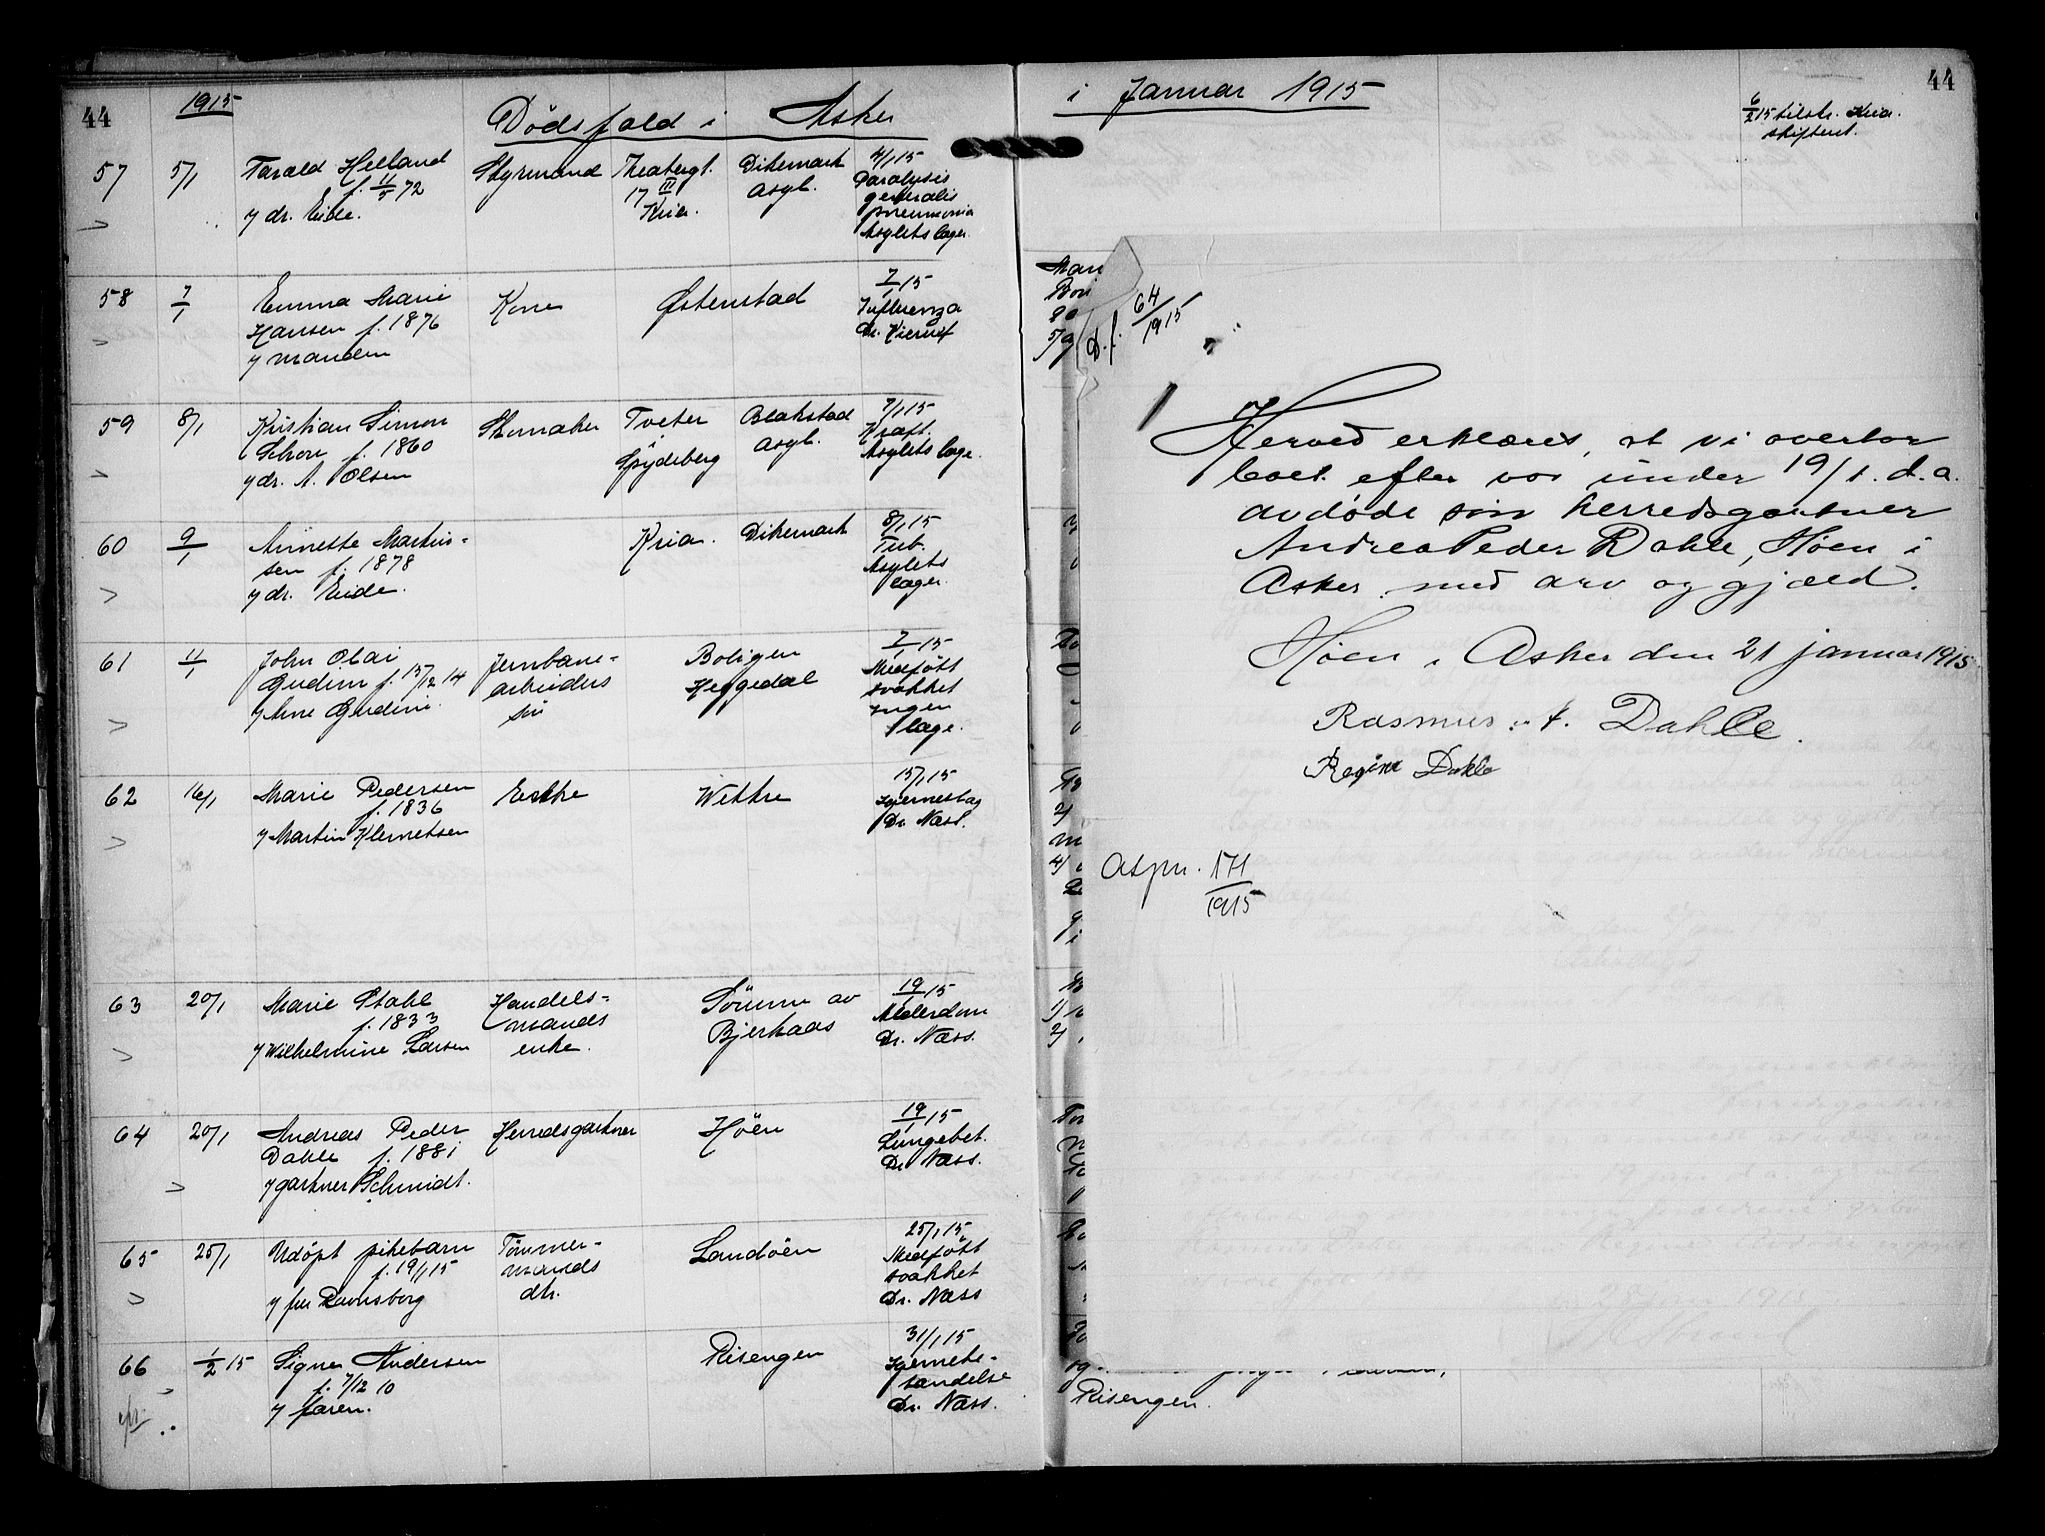 44
1915
Dödsfald i Asker
57 5/1 Tarald Helland Styrmand Theatergt. Dikemark 4/1 15
f. 11/5 72 17 III asyl. Paralysis
y dr. Eide. Kria. generalis
pneumonia
Asylets læge.
58 7/1 Emma Marie Kone Østenstad 7/1 15
Hansen f. 1876 Influenza
y manden Dr. Kierulf
59 8/1 Kristian Simon Skomaker Tveter Blakstad 7/1 15
f. 1860 Spydeberg asyl. Kræft.
y dr. A. Olsen Asylets læge.
60 9/1 Annette Martin- Kria. Dikemark 8/1 15
sen f. 1878 Tub.
y dr. Eide. Asylets
læge.
61 11/1 John Olai Jernbane- Boligen 7/1 15
Gudim f. 15/12 14 arbeiders Heggedal Medfött
y Arne Gudim. sön svakhet
Ingen
læge.
62 16/1 Marie Pedersen Enke Wettre 15/1 15
f. 1836 Hjerneslag
y Martin Klemetsen Dr. Næss.
63 20/1 Marie Stahl Handels- Sörum av 19/1 15
f. 1833 mands Bjerkaas Alderdom
y Wilhelmine Larsen enke. Dr. Næss.
64 20/1 Andreas Peder Herredsgartner Höen 19/1 15
Dahle f. 1881 Lungebet.
y gartner Schmidt. Dr. Næss.
65 25/1 Udöpt pikebarn Tömmer- Landöen 25/1 15
f. 19/1 15 mands Medfött
y fru Ravnsborg dtr. svakhet
Dr. Næss
66 1/2 15 Signe Andersen Risengen 31/1 15
f. 7/12 10 Hjernebe-
y faren. tændelse
Dr. Næss.
i Januar 1915
44
6/2 15 tilstr. Kria.
skifteret.
D.f. 64/1915
Herved erklæres, at vi overtar
boet efter vor under 19/1. d.a.
avdöde sön herredsgartner
Andreas Peder Dahle, Höen i
Asker med arv og gjæld.
Höen i Asker den 21 januar 1915
Rasmus A. Dahle.
Regine Dahle
Aspr. 171/1915
Risengen.